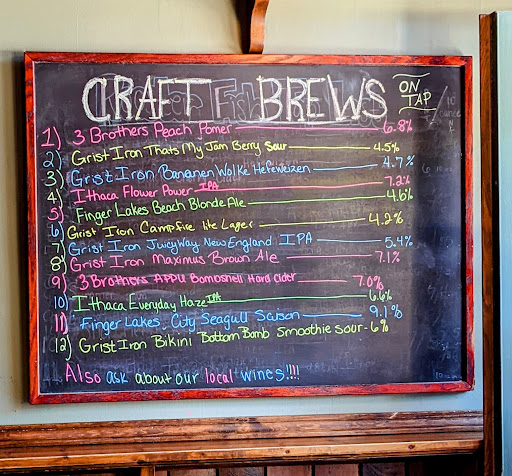 CRAFT BREWS ON TAP
1) 3 Brothers Peach Pomer 6.8%
2) Grist Iron Thats My Jam Berry Sour 4.5%
3) Grist Iron Bananen Wolke Hefeweizen 4.7%
4) Ithaca Flower Power IPA 7.2%
5) Finger Lakes Beach Blonde Ale 4.6%
6) Grist Iron Campfire lite Lager 4.2%
7) Grist Iron Juicy Way New England IPA 5.4%
8) Grist Iron Maximus Brown Ale 7.1%
9) 3 Brothers APPLE Bombshell Hard Cider 7.0%
10) Ithaca Everyday Haze IPA 6.6%
11) Finger Lakes City Seagull Saison 9.1%
12) Grist Iron Bikini Bottom Bomb Smoothie Sour - 6%
Also ask about our local wines!!!!